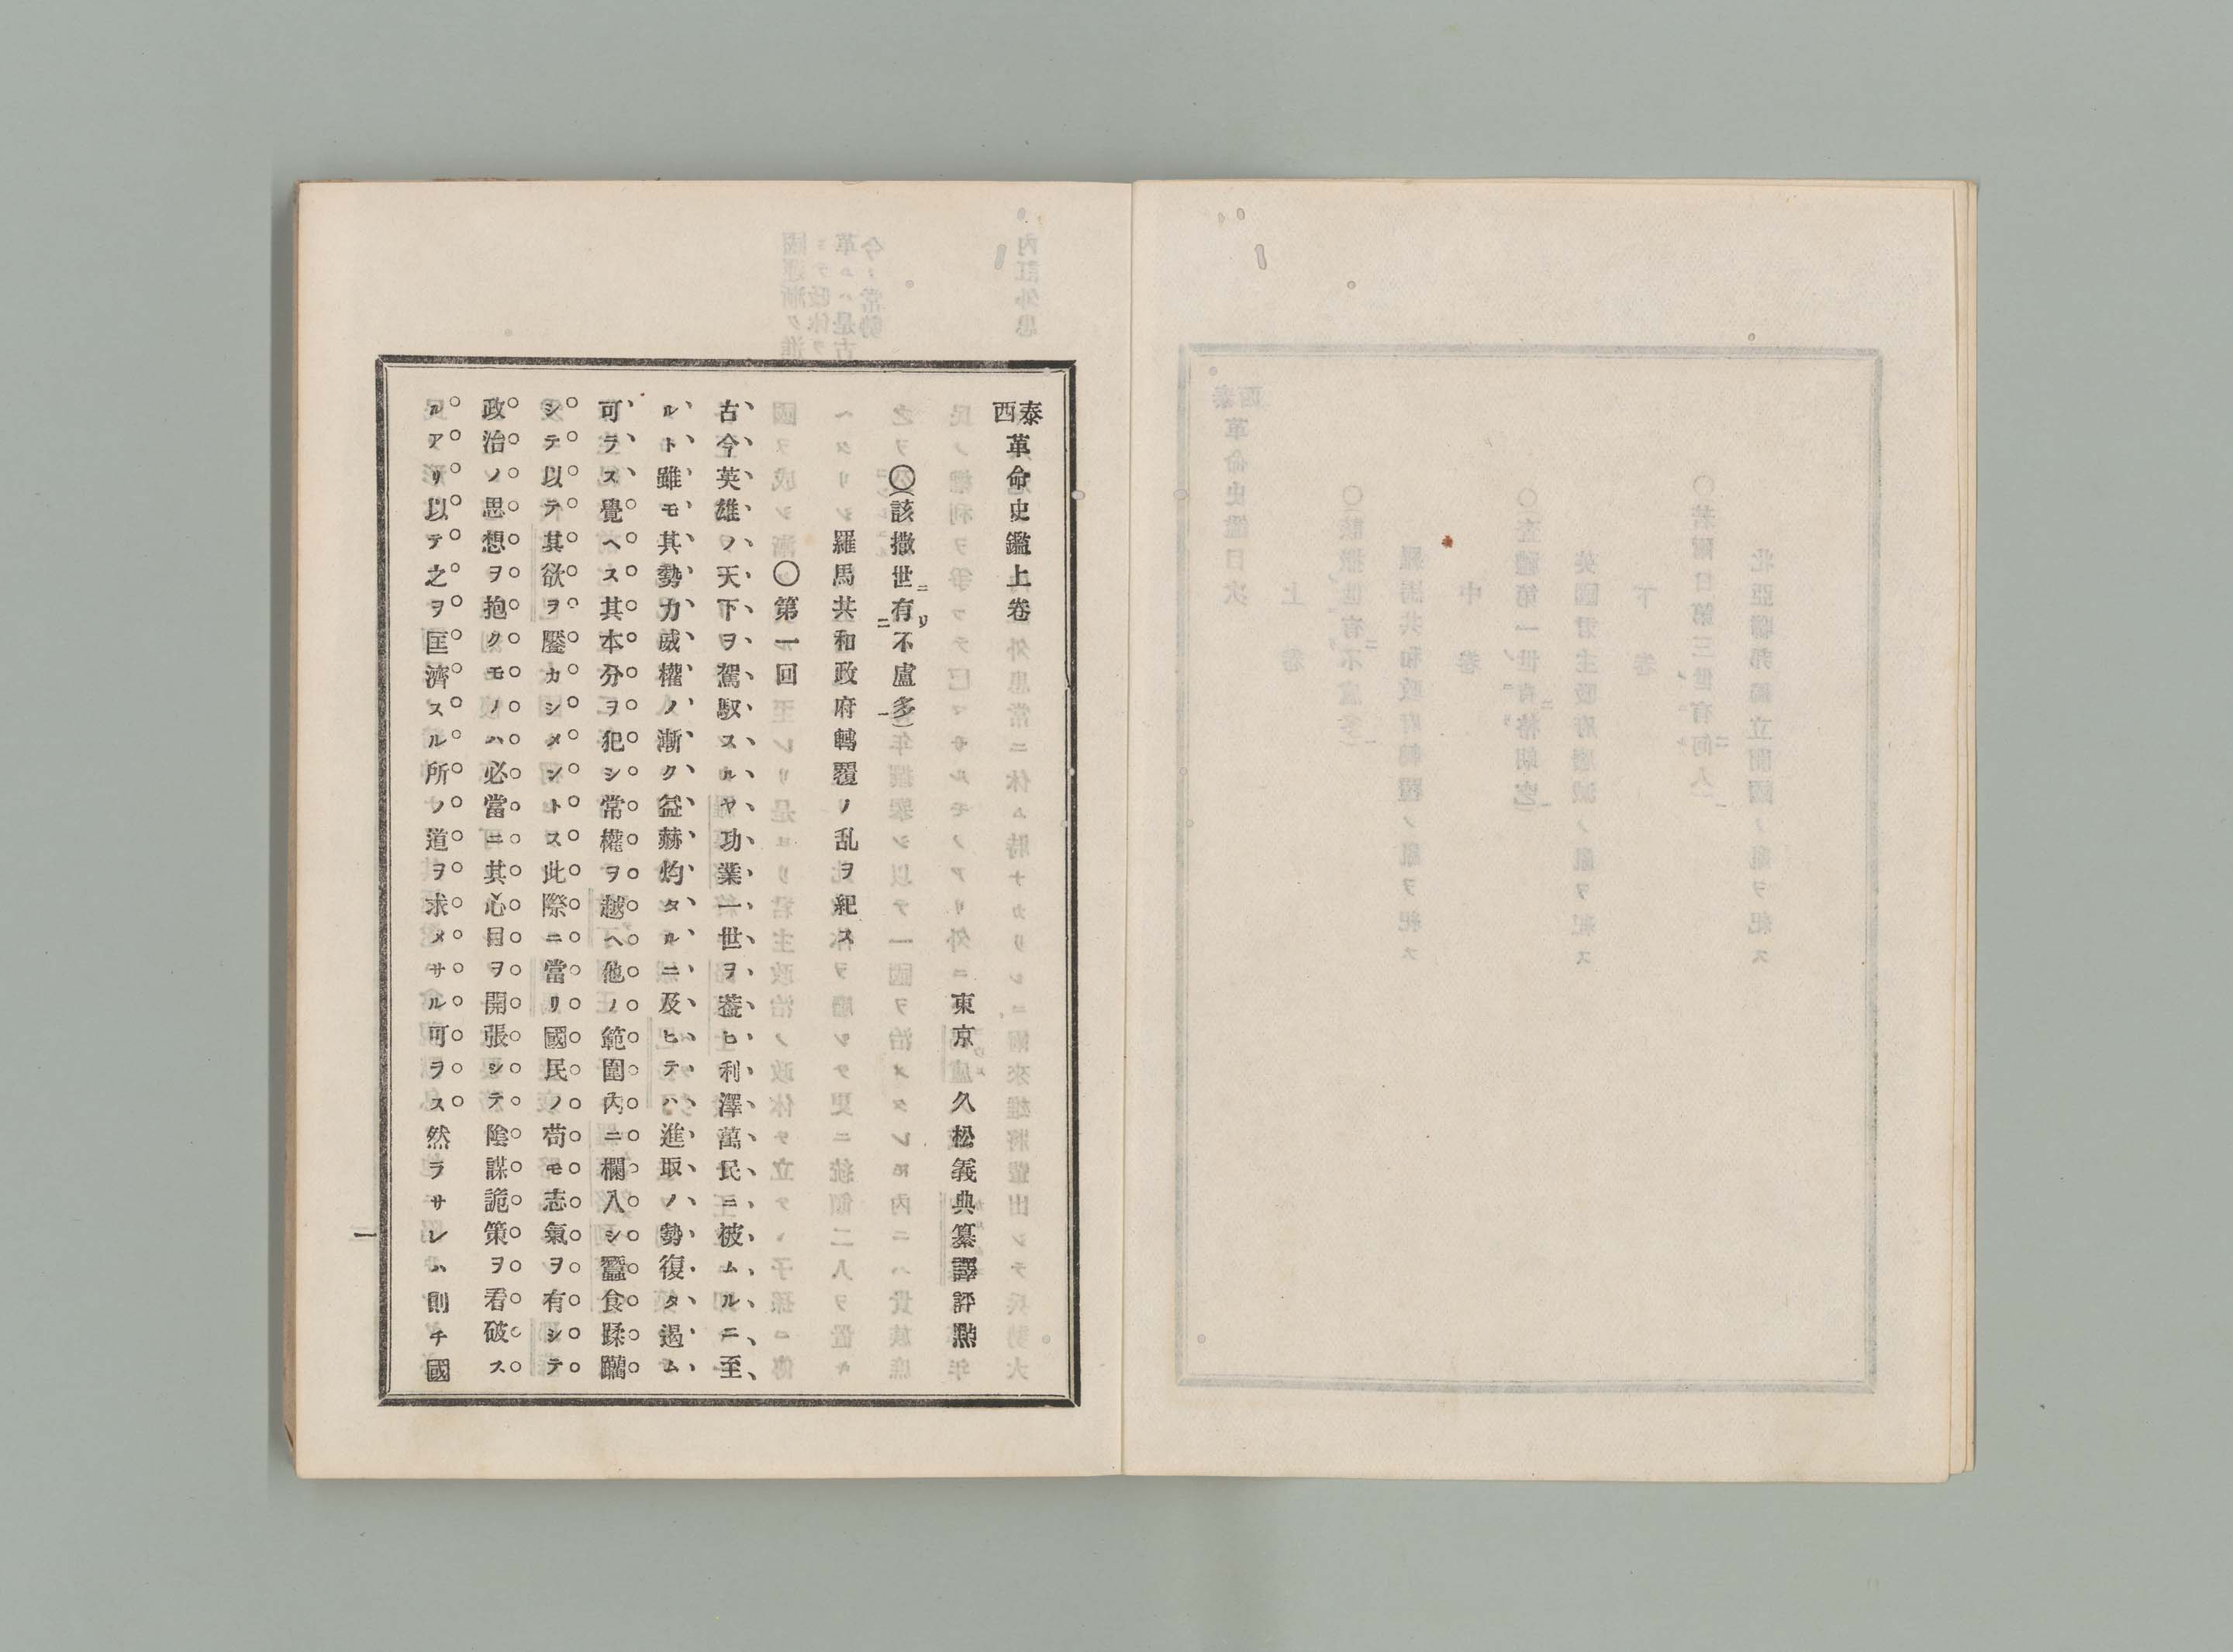 泰西革命史鑑上卷
東京 久松義典纂譯評㸃
〇(該撒世ニ有リ不ニ盧多一)
羅馬共和政府轉覆ノ乱ヲ紀ス
〇第一回
古今英雄ノ天下ヲ駕馭スルヤ功業一世ヲ蓋ヒ利澤萬民ニ被ムルニ至
ルト雖モ其勢力威權ノ漸ク益赫灼タルニ及ヒテハ進取ノ勢復タ遏ム
可ラス覺ヘス其本分ヲ犯シ常權ヲ越ヘ他ノ範圍內ニ欄入シ蠶食蹂躙
シテ以テ其欲ヲ饜カシメントス此際ニ當リ國民ノ苟モ志氣ヲ有シテ
政治ノ思想ヲ抱クモノハ必當ニ其心目ヲ開張シテ陰謀詭策ヲ看破ス
ルアリ以テ之ヲ匡濟スル所ノ道ヲ求メサル可ラス然ラサレハ則チ國
一